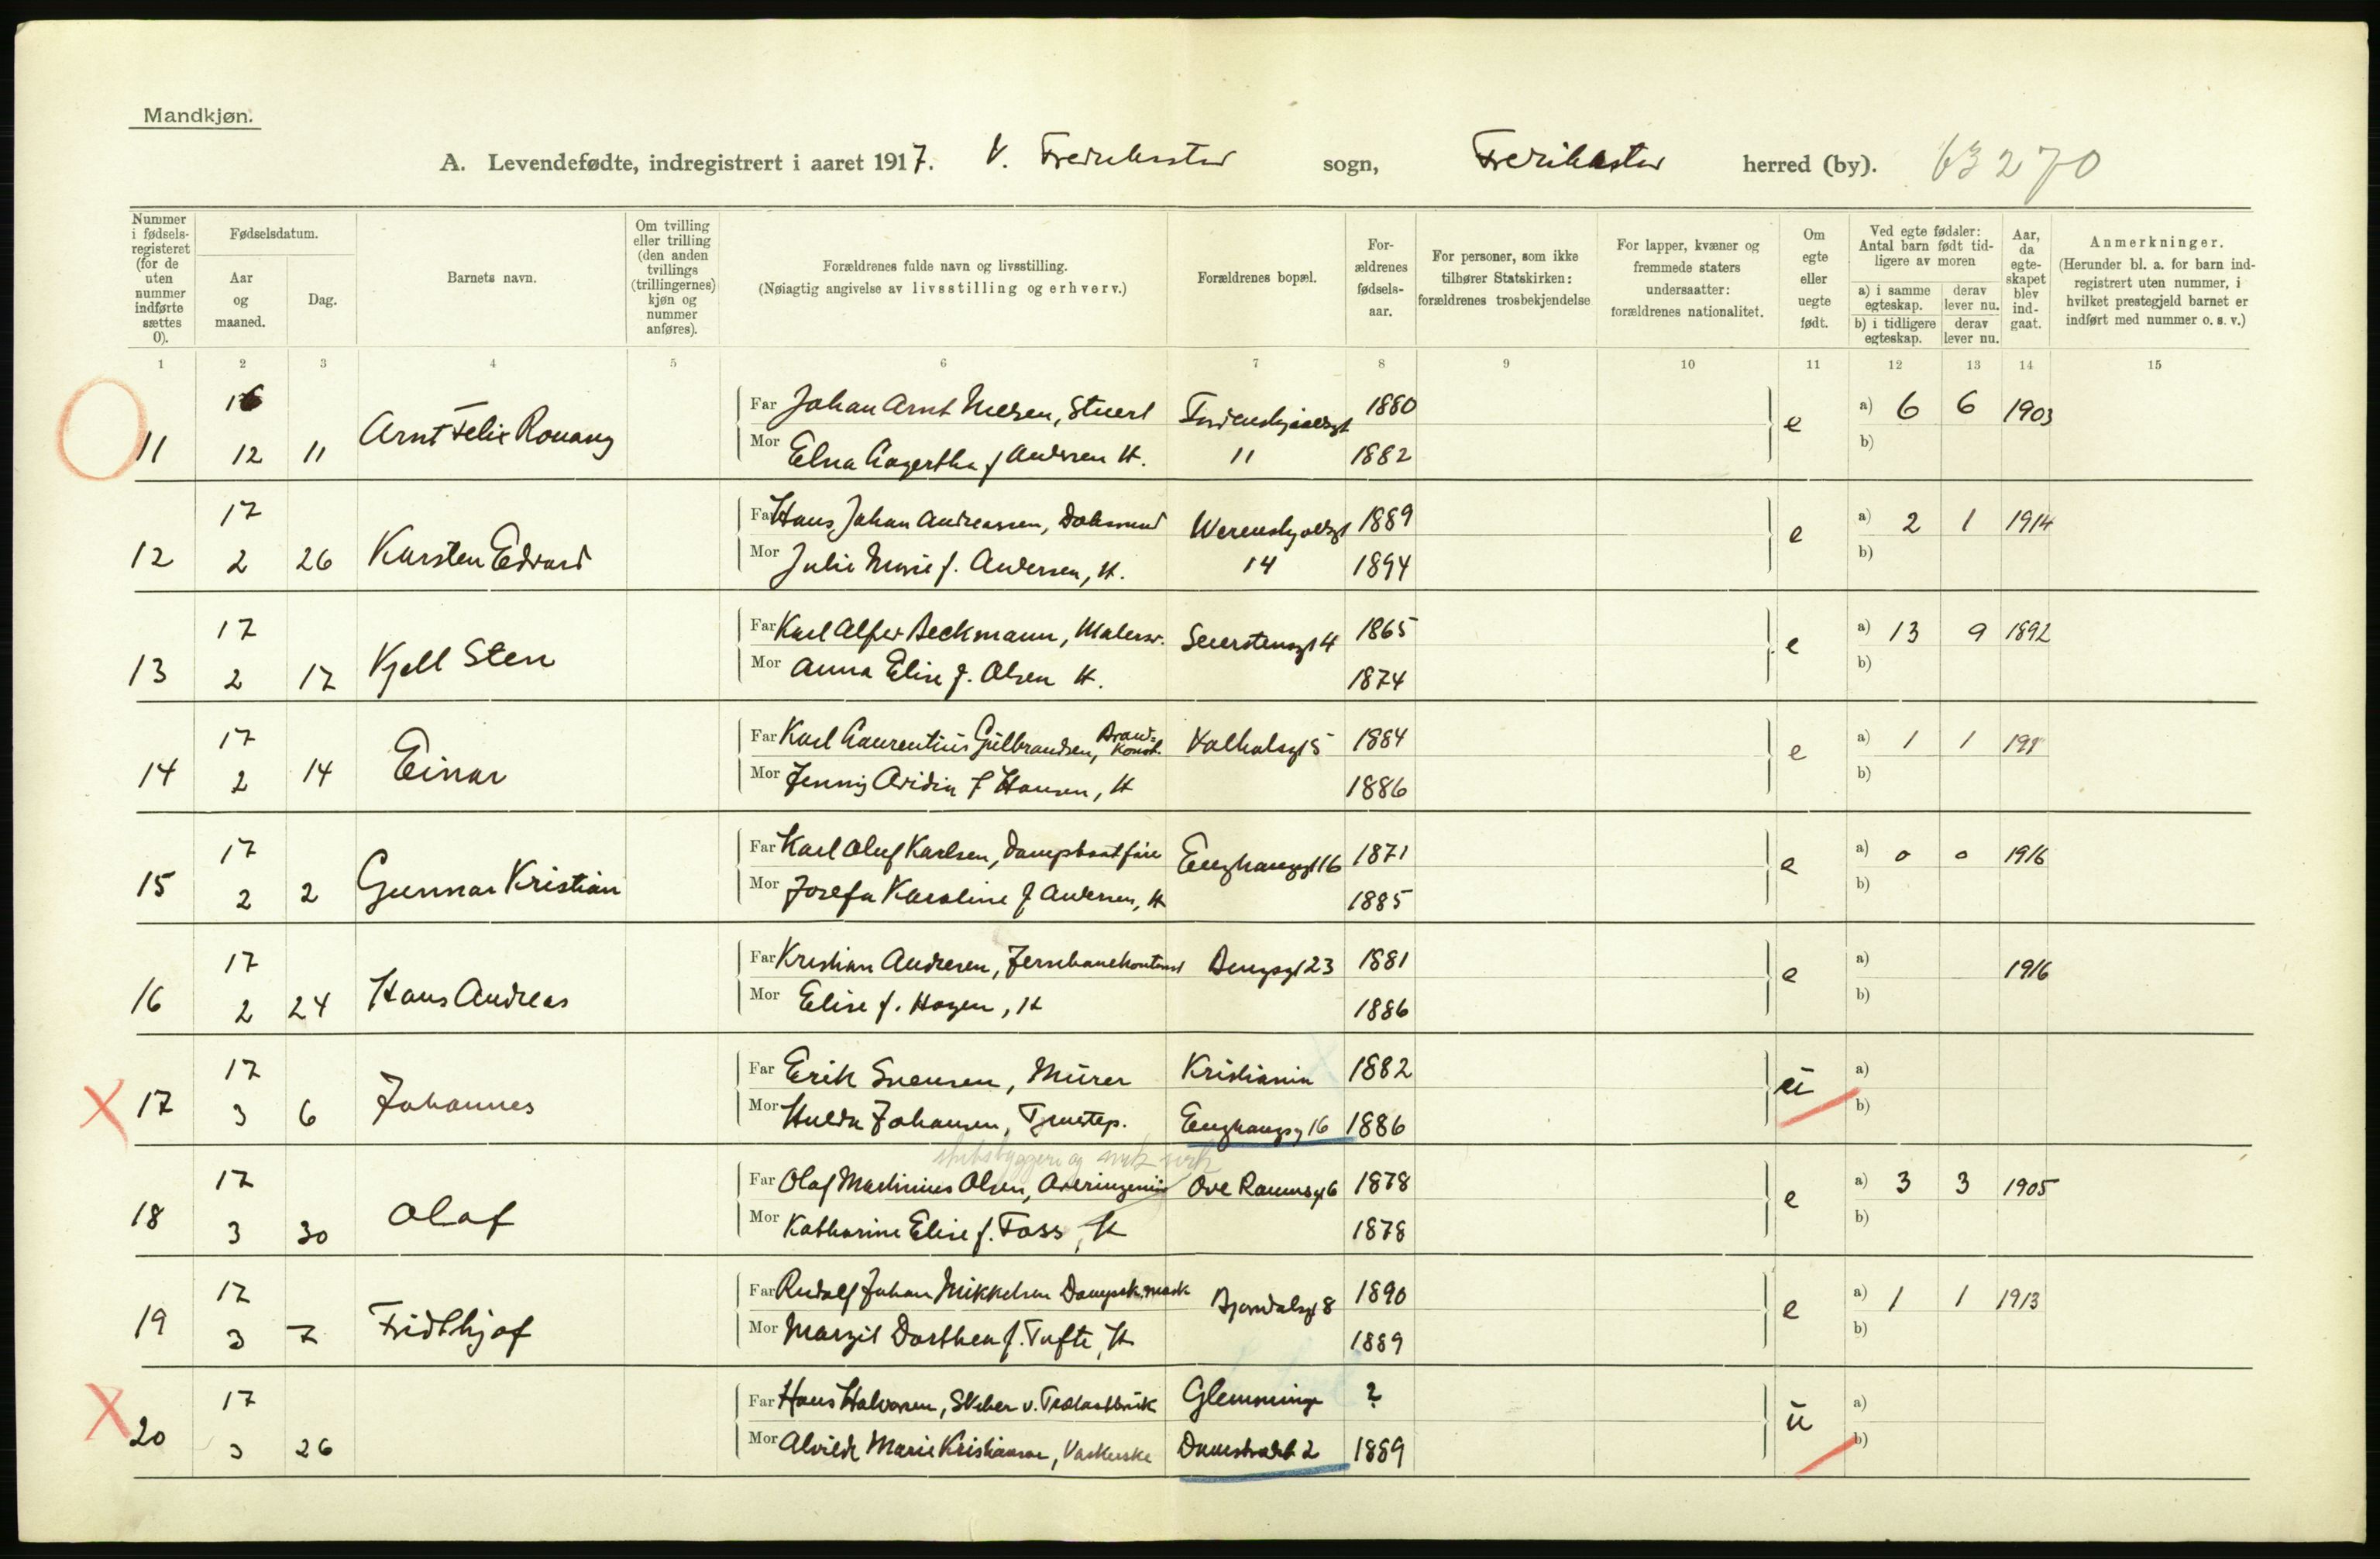 Mandkjøn.
A. Levendefødte, indregistrert i aaret 1917. V. Fredrikstad sogn, Fredrikstad herred (by). 63270
Nummer i fødselsregisteret (for de uten nummer indførte sættes 0).
Fødselsdatum.
Aar og maaned.
Dag.
Barnets navn.
Om tvilling eller trilling (den anden tvillings (trillingernes) kjøn og nummer anføres).
Forældrenes fulde navn og livsstilling.
(Nøiagtig angivelse av livsstilling og erhverv.)
Forældrenes bopæl.
Forældrenes fødselsaar.
For personer, som ikke tilhører Statskirken: forældrenes trosbekjendelse
For lapper, kvæner og fremmede staters undersaatter: forældrenes nationalitet.
Om egte eller uegte født.
Ved egte fødsler: Antal barn født tidligere av moren
a) i samme egteskap.
derav lever nu.
b) i tidligere egteskap.
derav lever nu.
Aar, da egteskapet blev indgaat.
Anmerkninger.
(Herunder bl. a. for barn indregistrert uten nummer, i hvilket prestegjeld barnet er indført med nummer o. s. v.)
1 2 3 4 5 6 7 8 9 10 11 12 13 14 15
16 Far Johan Arnt Nielsen, Stuert 1880 a) 6 6 1903
11 12 11 Arnt Felix Mor Elna f Andersen H. 11 1882 e b)
17 Far Hans Johan Andreassen, Werenskjoldsgt 1889 a) 2 1 1914
12 2 26 Karsten Edvard Mor Julie Marie f. Andersen, H. 14 1894 e b)
17 Far Karl Alfred Beckmann, Malersv. Seierstensgt 4 1865 a) 13 9 1892
13 2 17 Kjell Sten Mor Anna Elise f. Olsen H. 1874 e b)
17 Far Karl Laurentius Gulbrandsen, Brand=konst. Valhalsgt 5 1884 a) 1 1
14 2 14 Einar Mor Jenny f Hansen, H 1886 e b)
17 Far Karl Oluf Karlsen, Enghaugsgt 16 1871 a) 0 0 1916
15 2 2 Gunnar Kristian Mor Josefa Karoline f Andersen, H 1885 e b)
17 Far Kristian Andresen, Jernbanekontorist 23 1881 a) 1916
16 2 24 Hans Andreas Mor Elise f. Hagen, H 1886 e b)
17 Far Erik Svensen, Mürer Kristiania 1882 a)
17 3 6 Johannes Mor Hulda Johansen, Tjenestep. Enghaugsg 16 1886 ü b)
skibsbyggeri og mek verk
17 Far Olaf Martinius Olsen, Overingeniør Ove Ramms gt 6 1878 a) 3 3 1905
18 3 30 Olaf Mor Katharine Elise f. Foss, H 1878 e b)
17 Far Rudolf Johan Mikkelsen Dampsk. mask 8 1890 a) 1 1 1913
19 3 7 Fridthjof Mor Margit Dorthea f. Tufte, H 1889 e b)
17 Far Hans Halvorsen, Glemminge ? a)
20 3 26 Mor Alvilde Marie Kristiansen, Vaskerske Damstrædet 2 1889 ü b)